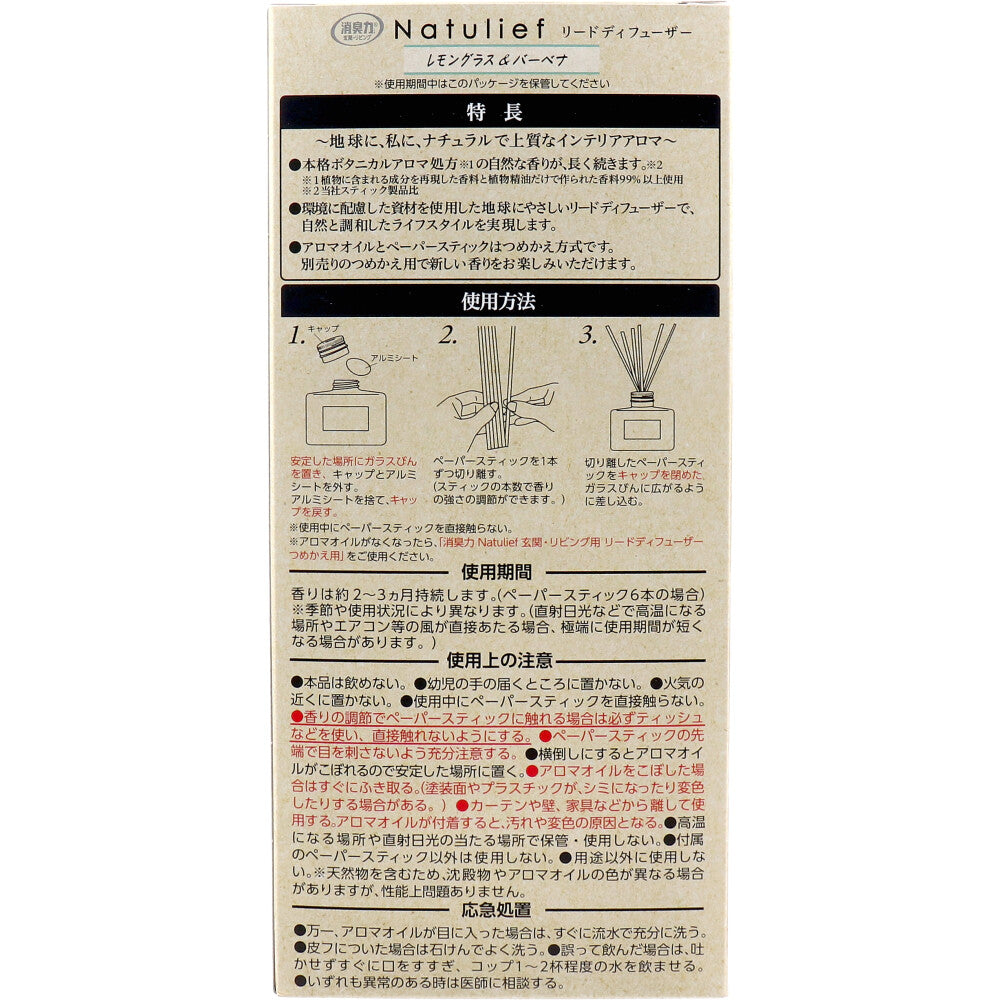 消臭力 Natulief リードディフューザー
玄関・リビング
レモングラス&バーベナ
※使用期間中はこのパッケージを保管してください
特 長
～地球に、私に、ナチュラルで上質なインテリアアロマ～
●本格ボタニカルアロマ処方※1の自然な香りが、長く続きます。※2
※1植物に含まれる成分を再現した香料と植物精油だけで作られた香料99%以上使用
※2当社スティック製品比
●環境に配慮した資材を使用した地球にやさしいリードディフューザーで、
自然と調和したライフスタイルを実現します。
●アロマオイルとペーパースティックはつめかえ方式です。
別売りのつめかえ用で新しい香りをお楽しみいただけます。
使用方法
1. キャップ
アルミシート
安定した場所にガラスびん
を置き、キャップとアルミ
シートを外す。
アルミシートを捨て、キャッ
プを戻す。
2.
ペーパースティックを1本
ずつ切り離す。
(スティックの本数で香り
の強さの調節ができます。)
3.
切り離したペーパースティ
ックをキャップを閉めた、
ガラスびんに広がるよう
に差し込む。
※使用中にペーパースティックを直接触らない。
※アロマオイルがなくなったら、「消臭力 Natulief 玄関・リビング用 リードディフューザー
つめかえ用」をご使用ください。
使用期間
香りは約2～3ヵ月持続します。(ペーパースティック6本の場合)
※季節や使用状況により異なります。(直射日光などで高温になる
場所やエアコン等の風が直接あたる場合、極端に使用期間が短く
なる場合があります。)
使用上の注意
●本品は飲めない。●幼児の手の届くところに置かない。●火気の
近くに置かない。●使用中にペーパースティックを直接触らない。
●香りの調節でペーパースティックに触れる場合は必ずティッシュ
などを使い、直接触れないようにする。●ペーパースティックの先
端で目を刺さないよう充分注意する。●横倒しにするとアロマオイ
ルがこぼれるので安定した場所に置く。●アロマオイルをこぼした場
合はすぐにふき取る。(塗装面やプラスチックが、シミになったり変色
したりする場合がある。)●カーテンや壁、家具などから離して使
用する。アロマオイルが付着すると、汚れや変色の原因となる。●高温
になる場所や直射日光の当たる場所で保管・使用しない。●付属
のペーパースティック以外は使用しない。●用途以外に使用しな
い。※天然物を含むため、沈殿物やアロマオイルの色が異なる場合
がありますが、性能上問題ありません。
応急処置
●万一、アロマオイルが目に入った場合は、すぐに流水で充分に洗う。
●皮フについた場合は石けんでよく洗う。●誤って飲んだ場合は、吐
かせずすぐに口をすすぎ、コップ1～2杯程度の水を飲ませる。
●いずれも異常のある時は医師に相談する。